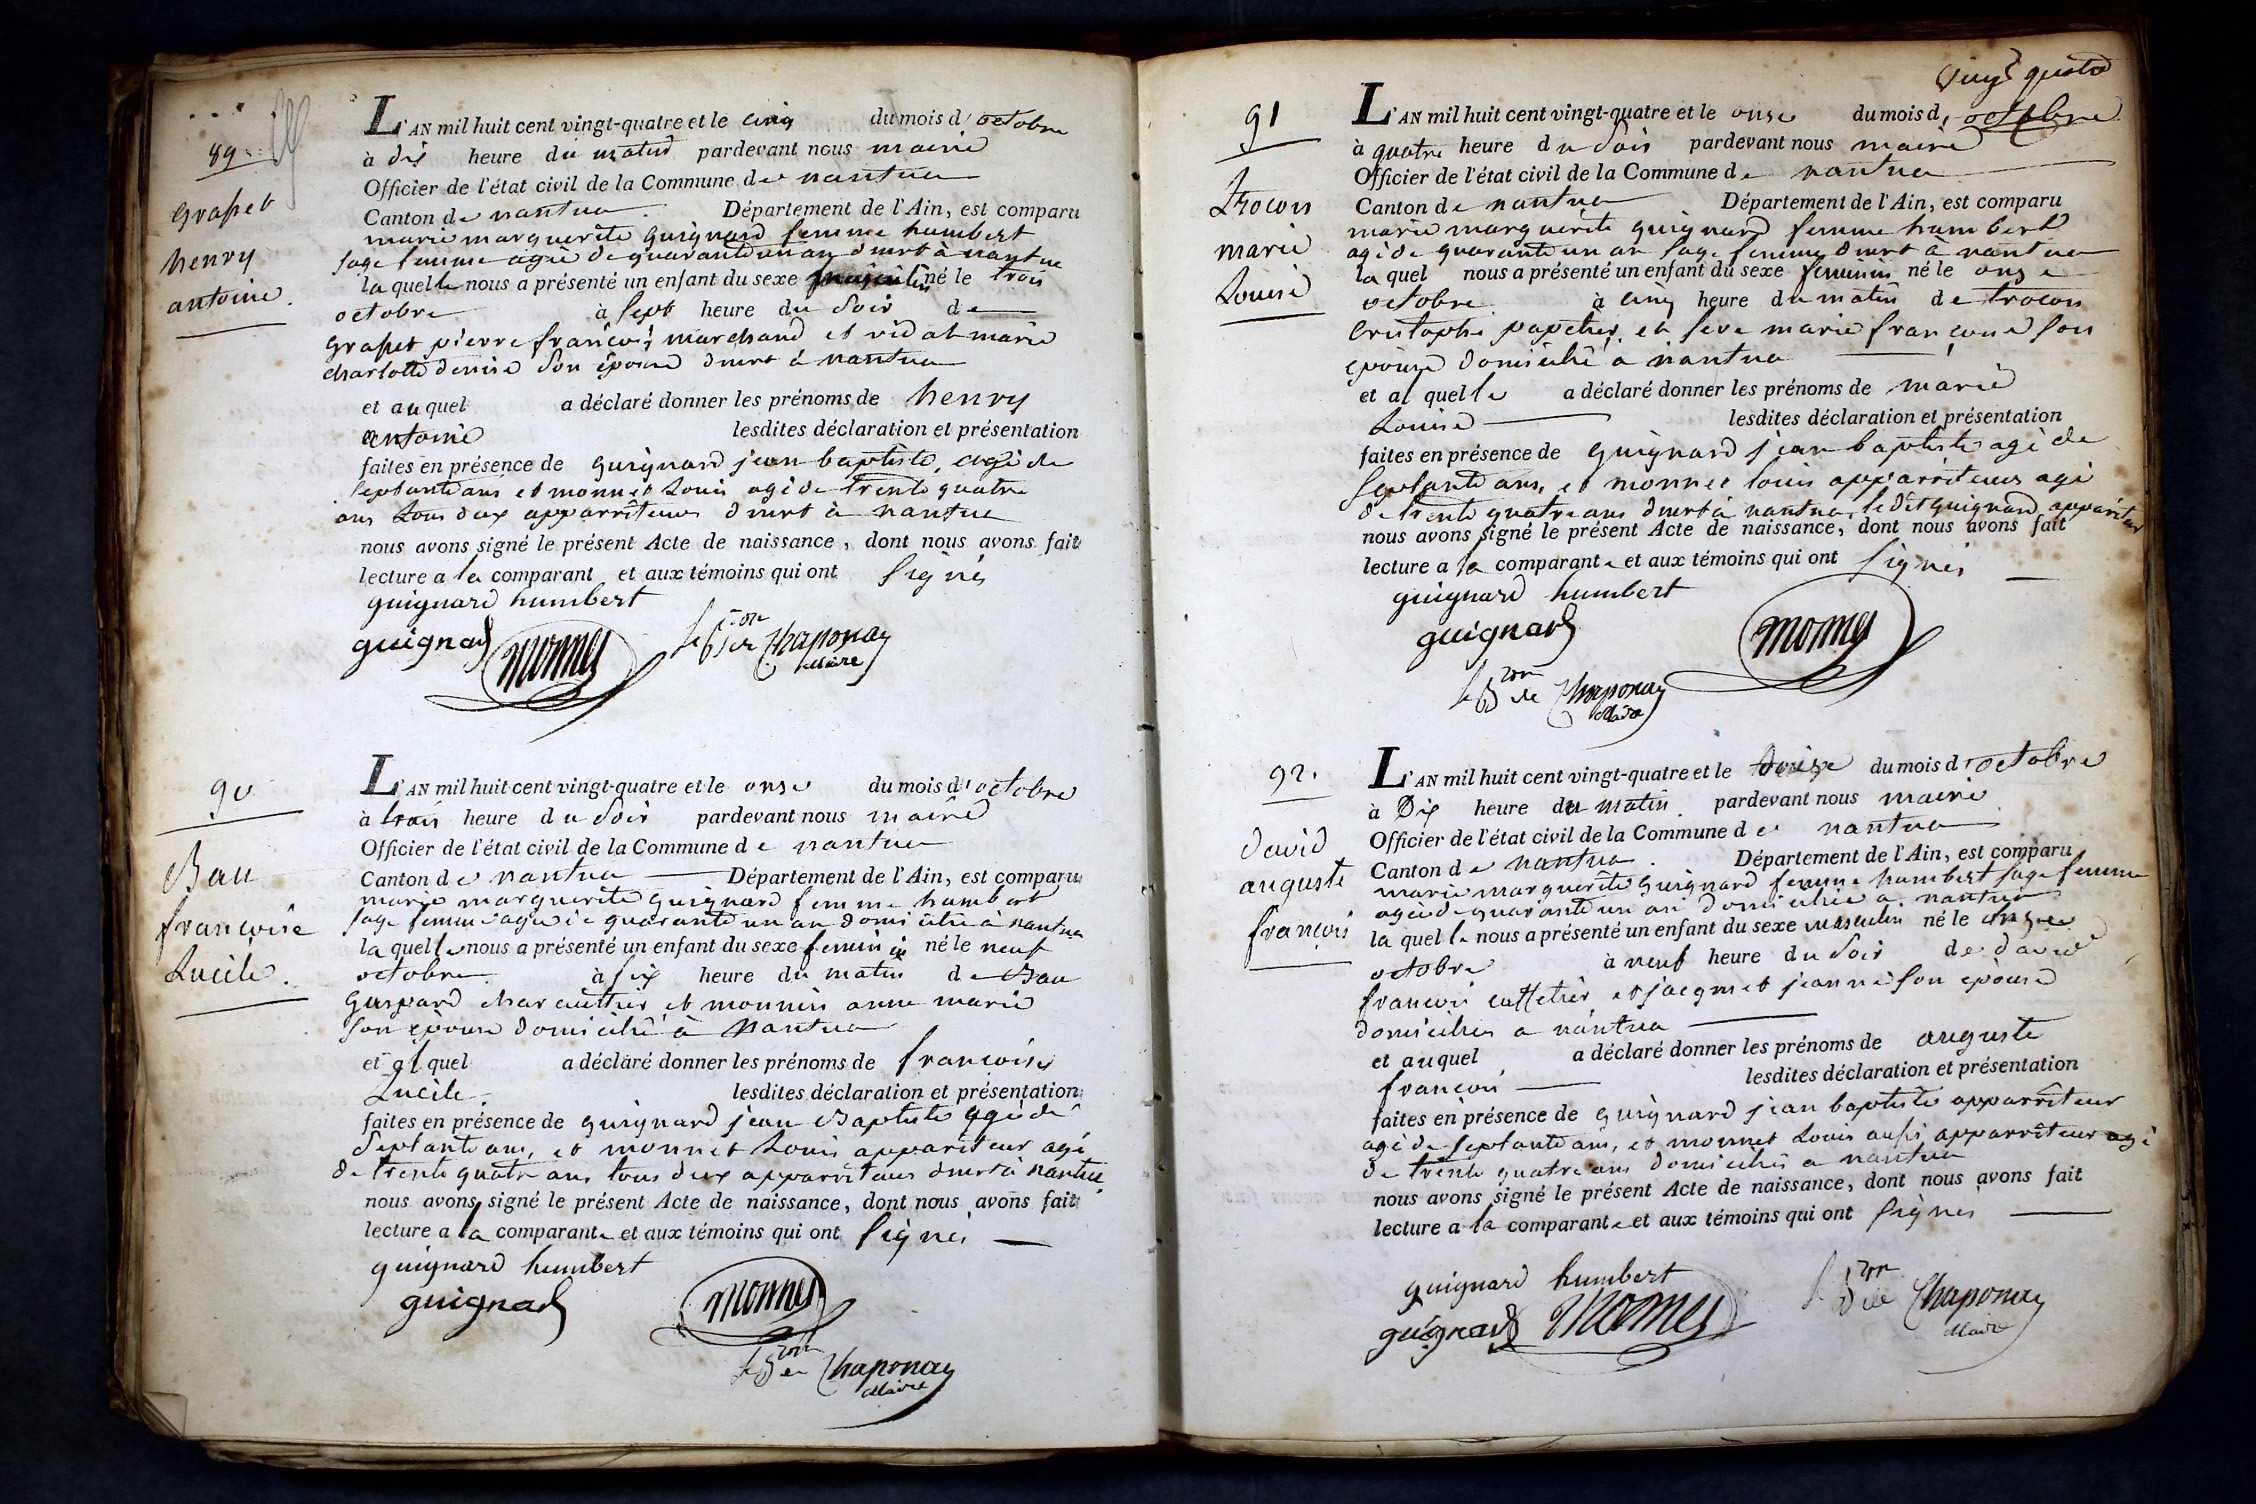 89
grasset
henry
antoine.
L'AN mil huit cent vingt-quatre et le cinq du mois d'octobre
à dix heure du matin pardevant nous maire
Officier de l'état civil de la Commune de nantua
Canton de nantua. Département de l'Ain, est comparu
marie marguerite guignard femme humbert
sage femme agée de quarante un an dmrt à nantua
la quelle nous a présenté un enfant du sexe masculin né le trois
octobre à sept heure du soir de
grasset pierre françois marchand et vidat marie
charlotte denise son épouse dmrt à nantua
et au quel a déclaré donner les prénoms de henry
antoine lesdites déclaration et présentation
faites en présence de guignard jean baptiste, agé de
septante ans et monnet Louis agé de trente quatre
ans tous dux apparriteurs dmrt à nantua
nous avons signé le présent Acte de naissance, dont nous avons fait
lecture a la comparant et aux témoins qui ont signés
guignard humbert
guignard monnet le Bon de Chaponay
Maire
90
Bau
francoise
Lucile.
L'AN mil huit cent vingt-quatre et le onze du mois d'octobre
à trois heure du soir pardevant nous maire
Officier de l'état civil de la Commune de nantua
Canton de nantua Département de l'Ain, est comparu
marie marguerite guignard femme humbert
sage femme agée de quarante un an domicilié à nantua
la quelle nous a présenté un enfant du sexe feminin né le neuf
octobre à six heure du matin de Bau
Gaspard charcuttier, et monnin anne marie
son épouse domicilié à Nantua
et al quel a déclaré donner les prénoms de francoise
Lucile. lesdites déclaration et présentation
faites en présence de guignard jean Baptiste agé de
septante ans, et monnet Louis appariteur agé
de trente quatre ans tous deux apparriteurs dmrt à nantua
nous avons signé le présent Acte de naissance, dont nous avons fait
lecture a la comparante et aux témoins qui ont signés
guignard humbert
guignard monnet
le Bon de Chaponay
Maire
vingt quatre
91
Trocon
marie
Louise
L'AN mil huit cent vingt-quatre et le onze du mois d'octobre
à quatre heure du soir pardevant nous maire
Officier de l'état civil de la Commune de nantua
Canton de nantua Département de l'Ain, est comparu
marie marguerite guignard femme humbert
agé de quarante un an sage femme dmrt à nantua
la quel nous a présenté un enfant du sexe feminin né le onze
octobre à cinq heure du matin de trocon
cristophe papetier, et seve marie françoise son
epouse domicilié a nantua
et al quelle a déclaré donner les prénoms de marie
Louise lesdites déclaration et présentation
faites en présence de guignard jean baptiste agé de
septante ans, et monnet louis apparriteur agé
de trente quatre ans dmrt à nantua, le dit guignard appariteur
nous avons signé le présent Acte de naissance, dont nous avons fait
lecture a la comparante et aux témoins qui ont signés
guignard humbert
guignard monnet
le Bon de Chaponay
Maire
92.
david
auguste
françois
L'AN mil huit cent vingt-quatre et le douze du mois d'octobre
à Dix heure du matin pardevant nous maire
Officier de l'état civil de la Commune de nantua
Canton de nantua. Département de l'Ain, est comparu
marie marguerite guignard femme humbert sage femme
agée de quarante un an domiciliée a nantua
la quelle nous a présenté un enfant du sexe masculin né le onze
octobre à neuf heure du soir de david
françois caffetier et jacquet jeanne son epouse
domiciliés a nantua
et au quel a déclaré donner les prénoms de auguste
françois lesdites déclaration et présentation
faites en présence de guignard jean baptiste apparriteur
agé de septante ans, et monnet Louis aussi apparriteur agé
de trente quatre ans domiciliés a nantua
nous avons signé le présent Acte de naissance, dont nous avons fait
lecture a la comparante et aux témoins qui ont signés
guignard humbert
guignard monnet le Bon de Chaponay
Maire